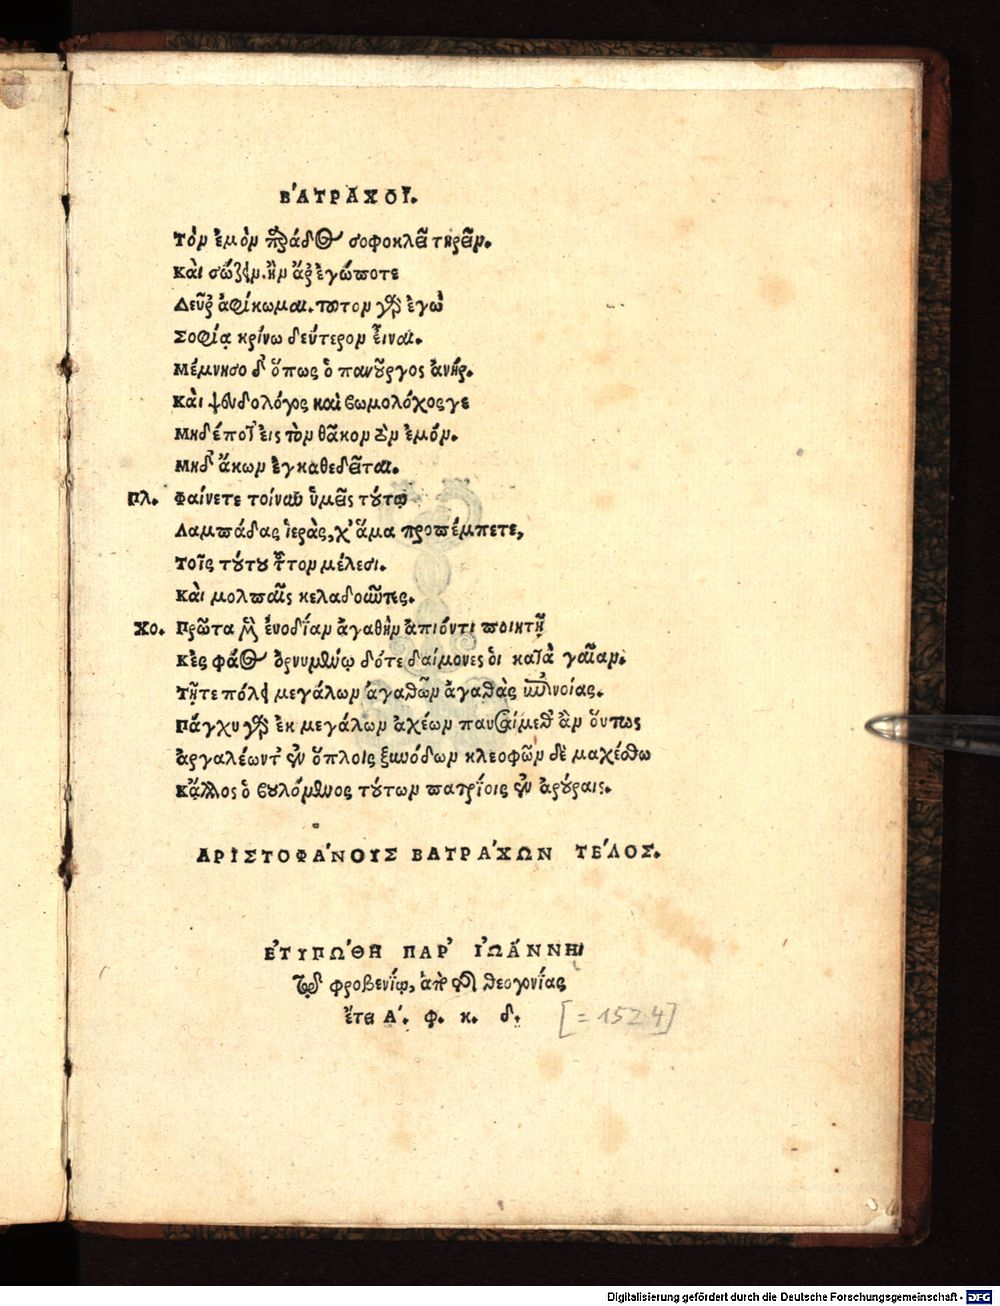 ΒΑ΄ΤΡΑΧΟΙ.
Τὸν ἐμὸν παράδος σοφοκλεῖ τηρεῖν.
Καὶ σώζειν. ἢν ἄρ᾽ ἐγώ ποτε
Δεῦρ᾽ ἀφίκωμαι. τοῦτον γὰρ ἐγὼ
Σοφίᾳ κρίνω δεύτερον εἶναι.
Μέμνησο δ᾽ ὅπως ὁ πανοῦργος ἀνήρ.
Καὶ ψευδολόγος καὶ βωμολόχος γε
Μηδέποτ᾽ εἰς τὸν θᾶκον τὸν ἐμόν.
Μηδ᾽ ἄκων ἐγκαθεδεῖται.
Πλ. Φαίνετε τοίνυν ὑμεῖς τούτῳ
Λαμπάδας ἱεράς, χ᾽ ἅμα προπέμπετε,
Τοῖς τούτου τοῦτον μέλεσι.
Καὶ μολπαῖς κελαδοῦντες.
Χο. Πρῶτα μὲν ἐνοδίαν ἀγαθὴν ἀπιόντι ποιητῇ
Κἐς φάος ὀρνυμένῳ δότε δαίμονες οἱ κατὰ γαῖαν.
Τῇ τε πόλει μεγάλων ἀγαθῶν ἀγαθὰς ἐπινοίας.
Πάγχυ γὰρ ἐκ μεγάλων ἀχέων παυσαίμεθ᾽ ἂν οὕτως
ἀργαλέων τ᾽ ἐν ὅπλοις ξυνόδων κλεοφῶν δὲ μαχέσθω
Κἄλλος ὁ βουλόμενος τούτων πατρίοις ἐν ἀρούραις.
ΑΡΙΣΤΟΦΑ΄ΝΟΥΣ ΒΑΤΡΑ΄ΧΩΝ ΤΕ΄ΛΟΣ.
ΕΤΥΠΩ΄ΘΗ ΠΑΡ᾽ ΙΩΑ΄ΝΝΗ
τῷ φροβενίῳ, ἀπὸ τῆς θεογονίας
ἔτει Α΄. φ. κ. δ. [= 1524]
Digitalisierung gefördert durch die Deutsche Forschungsgemeinschaft - DFG